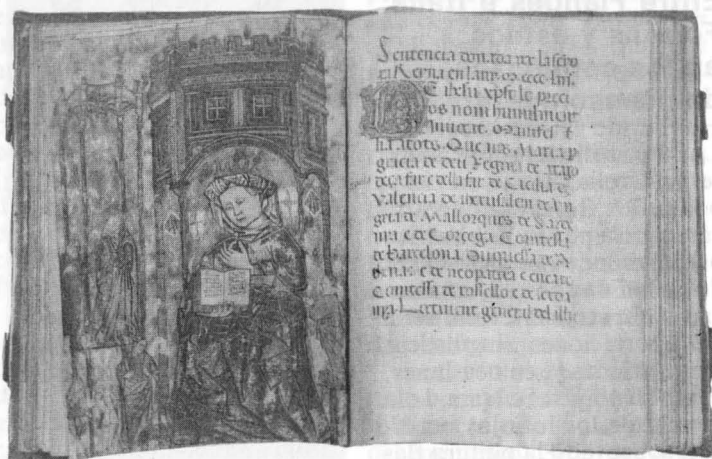 Sentencia donada per la sero
ra Reyna en lany. M. cccc. Lvij.
E ihesu xpst le preci
os nom humilment
Invocat. Manifest
sia a tots. Que nos Maria p
gracia de deu Regina de arago
deça far e della far de Cicilia de
Valencia de iherusalem de un
gria de Mallorques de Sarde
nya e de Corcega Comtessa
de Barcelona Duquessa de
e de neopatria e encare
Comtessa de rossello e de cerda
nya Lectinent general del